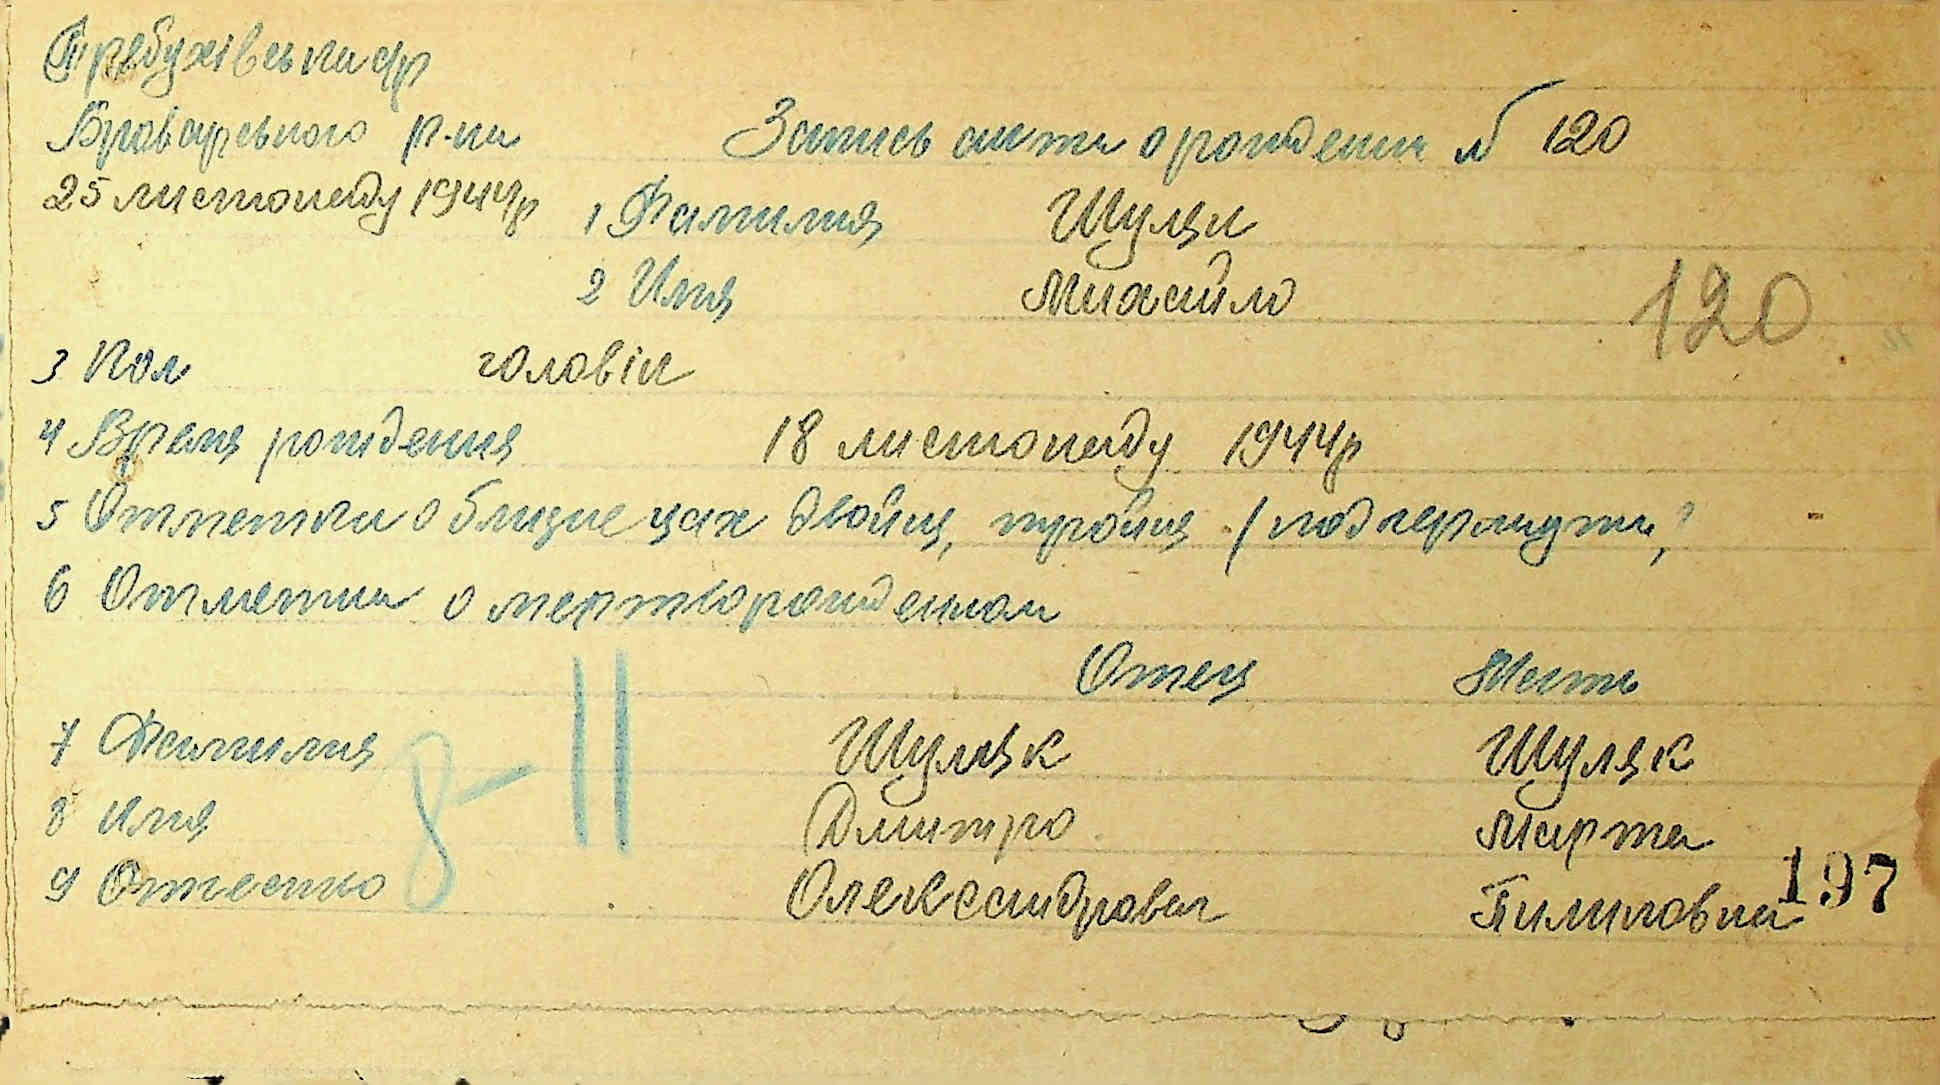 Требухівська с/р
Броварського р-на
Запись акта о рождении № 120
25 листопаду 1944р
1 Фамилия Шуляк
2 Имя Михайло
120
3 Пол чоловік
4 Время рождения 18 листопаду 1944р
5 Отметки о близнецах двойня, тройня (подчеркнуть)
6 Отметки о мертворожденном
Отец Мать
7 Фамилия Шуляк Шуляк
8 Имя Дмитро Марта
9 Отчество Олександрович Пилиповна
8-11
197